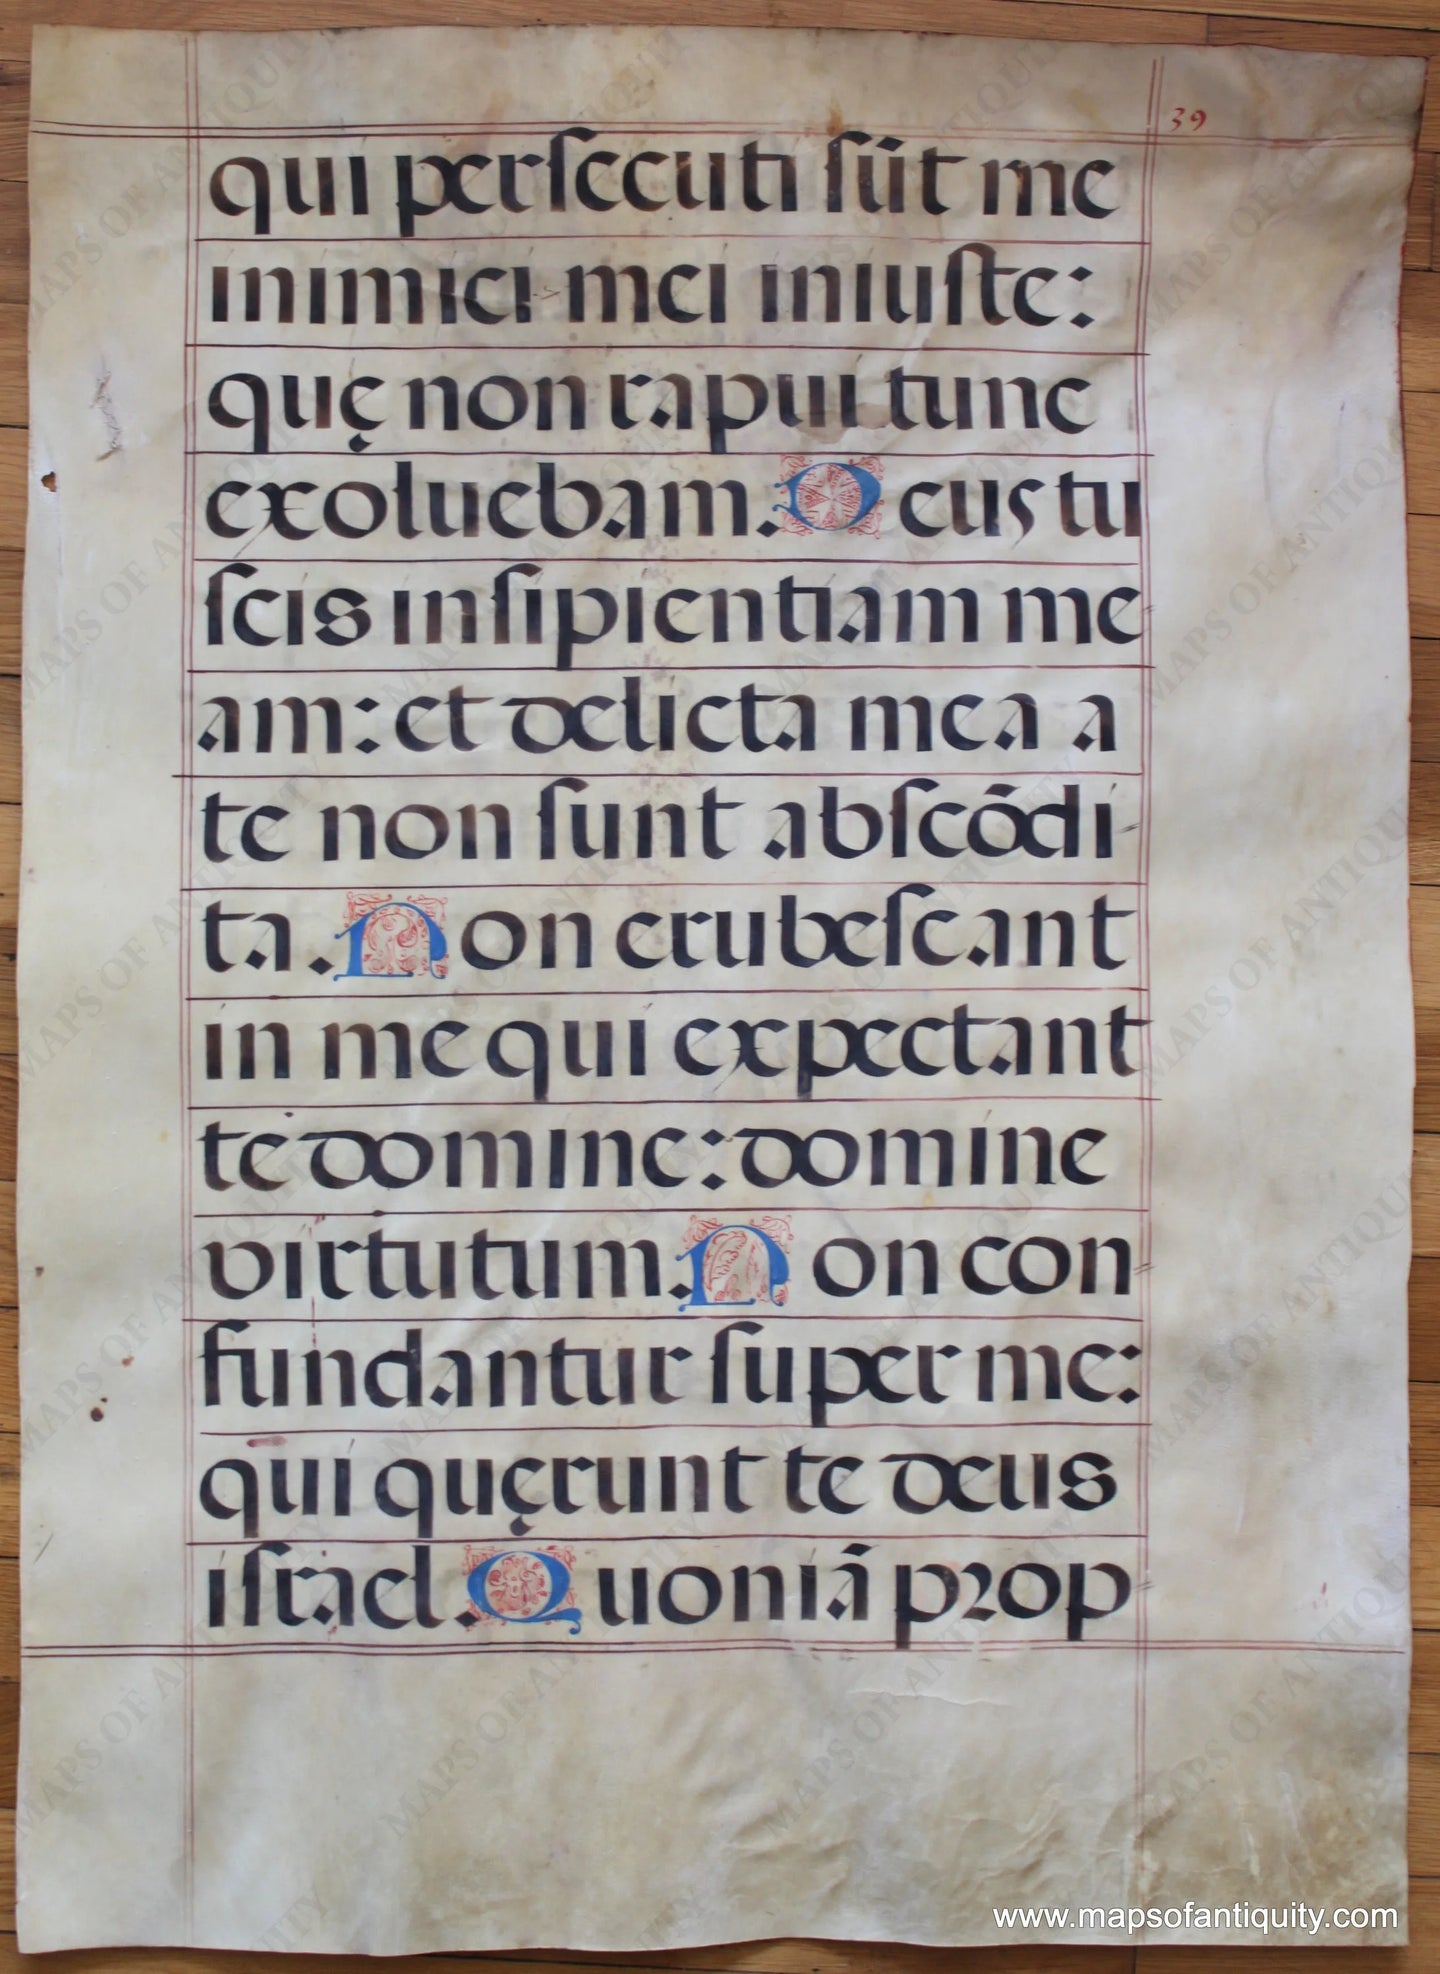 39
qui perſecuti ſūt me
inimici mei iniuſte:
quę non rapui tunc
exoluebam. Deus tu
ſcis inſipientiam me
am: et delicta mea a
te non ſunt abſcōdi
ta. Non erubeſcant
in me qui expectant
te domine: domine
virtutum. Non con
fundantur ſuper me:
qui quęrunt te deus
iſrael. Quoniā prop
www.mapsofantiquity.com
MAPS OF ANTIQUITY